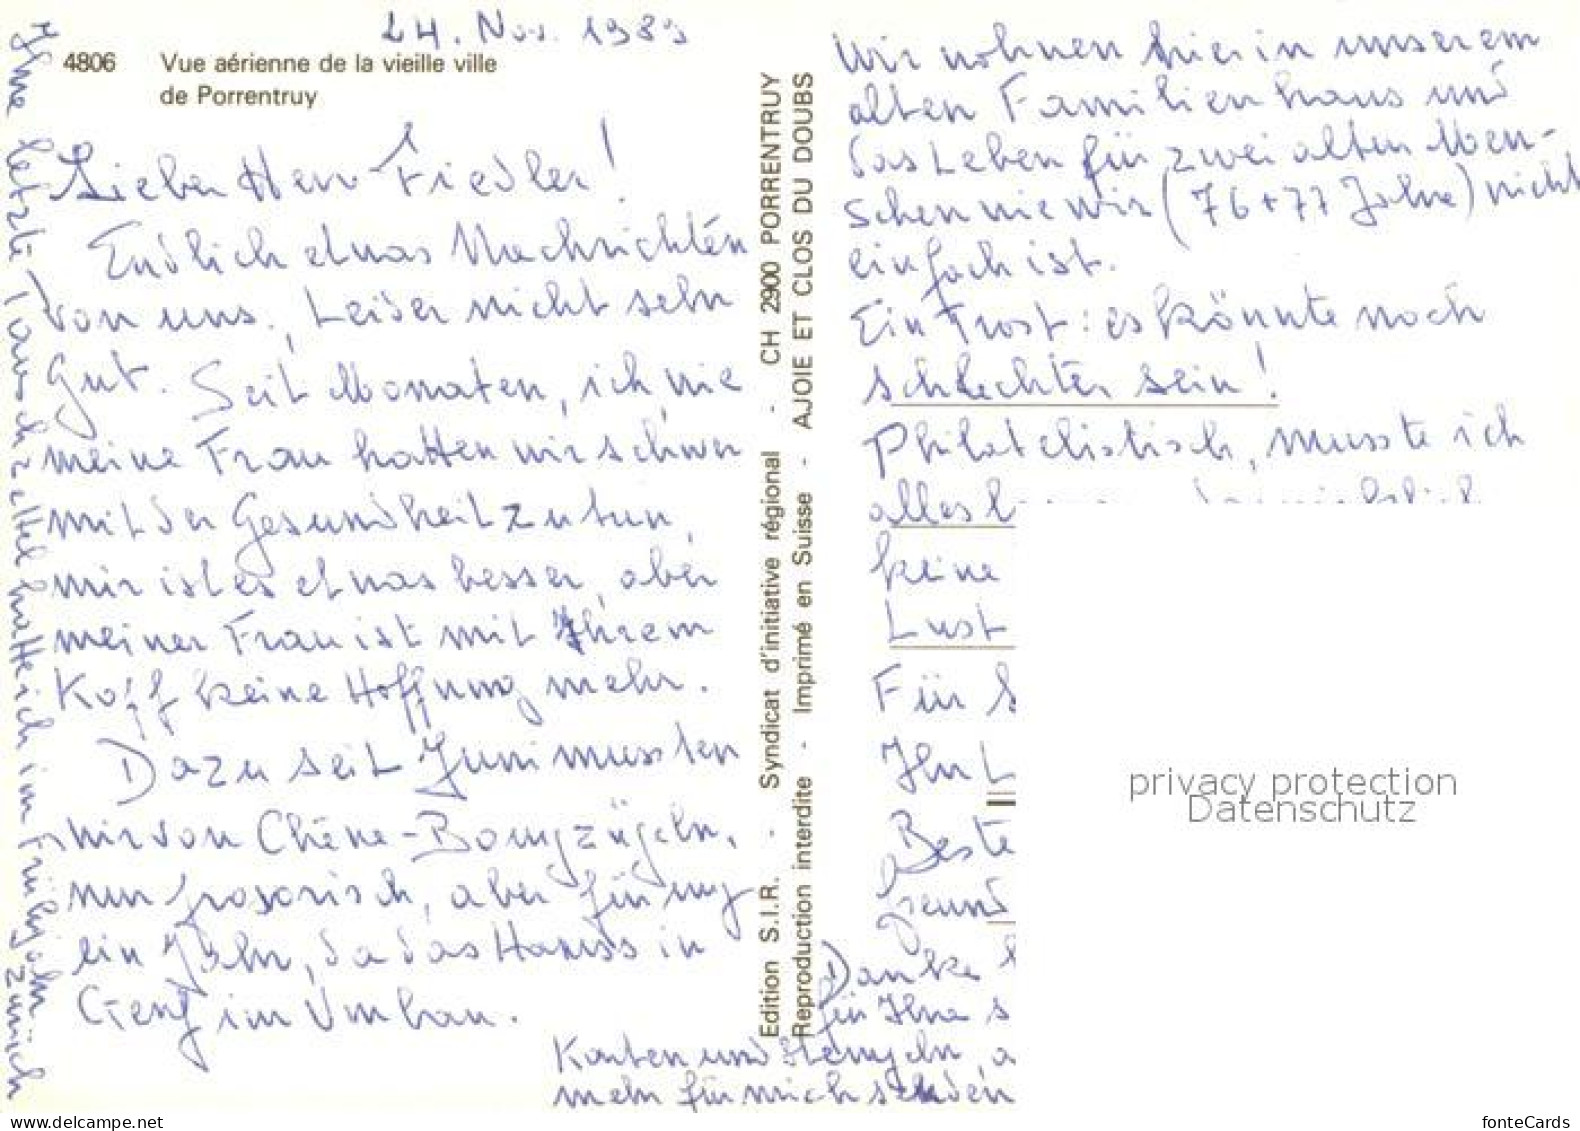 24. Nov. 1989
4806 Vue aérienne de la vieille ville
de Porrentruy
Lieber Herr Fiedler!
Endlich etwas Nachrichten
von uns., Leider nicht sehr
Gut. Seit Monaten, ich wie
meine Frau hatten wir schwer
mit der Gesundheit zu tun,
mir ist es etwas besser, aber
meiner Frau ist mit Ihrem
Kopf keine Hoffnung mehr.
Dazu seit Juni mussten
wir von Chêne-Bourg zügeln,
nur prosorisch, aber für ung
ein Jahr, da das Hauss in
Genf im Umbau.
Ihre letzte Tauschzettel hatte ich im Frühjahr zurück
Edition S.I.R. - Syndicat d'initiative régional - CH 2900 PORRENTRUY
Reproduction interdite - Imprimé en Suisse - AJOIE ET CLOS DU DOUBS
Wir wohnen hier in unserem
alten Familienhaus und
das Leben für zwei alten Men-
schen wie wir (76+77 Jahre) nicht
einfach ist.
Ein Trost: es könnte noch
schlechter sein!
Philatelistisch, musste ich
alles
keine
Lust
Für S
Ihr L
Beste
freund
Danke
für Ihre s
Karten und Stempeln, a
mehr für mich senden
privacy protection
Datenschutz
www.delcampe.net
fonteCards